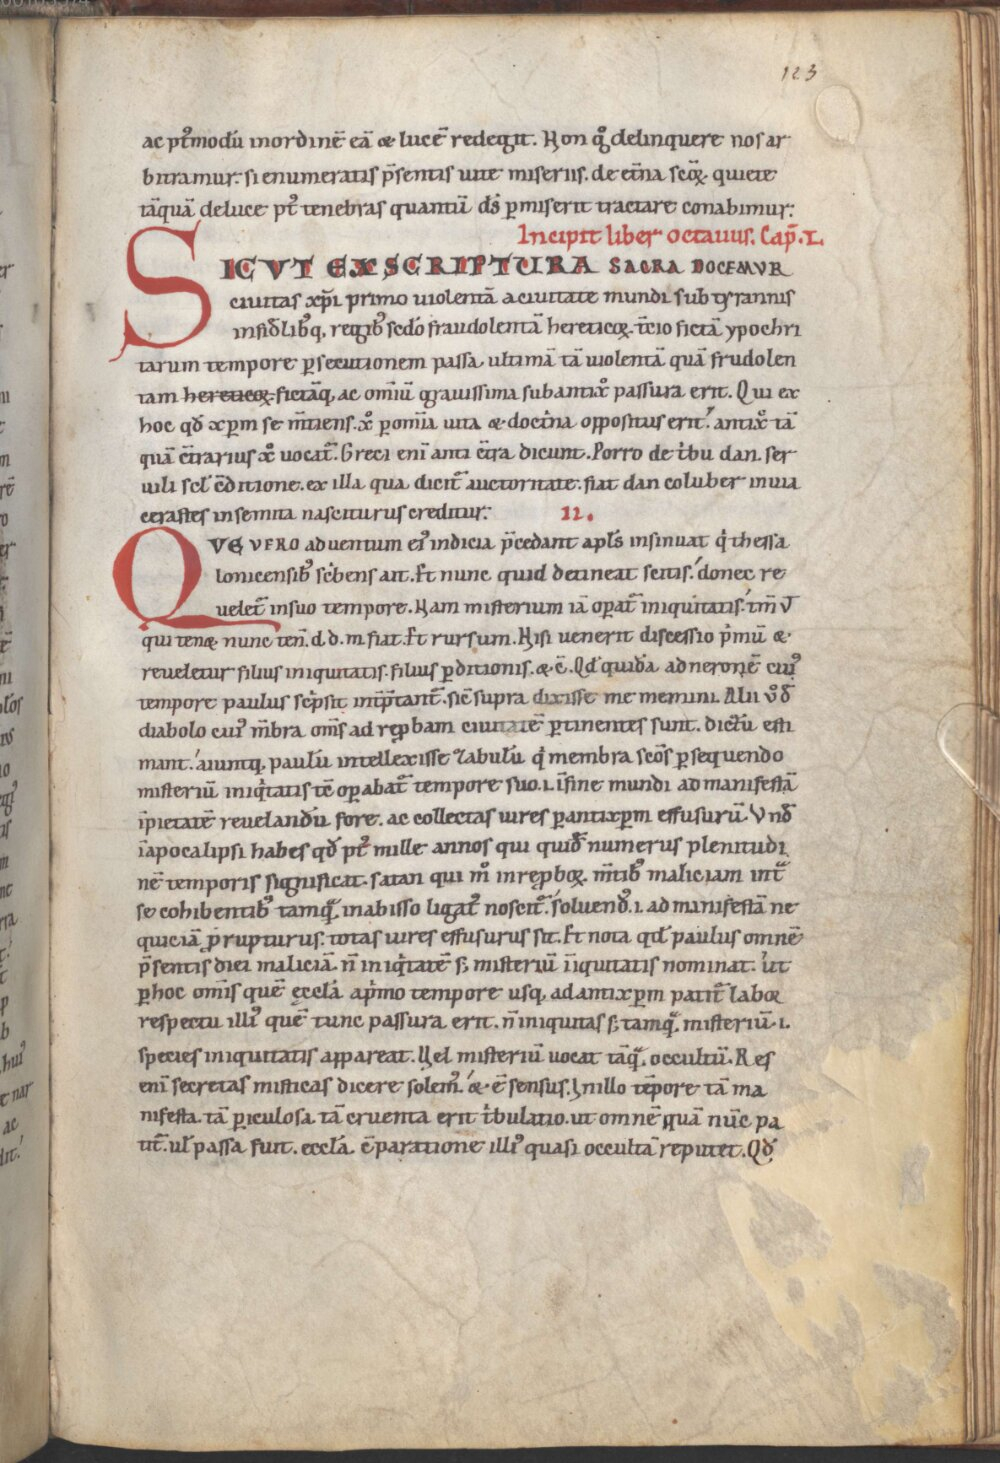 123
ac pt᷒modū inordinē eā & lucē redegit. Non g° delinquere nos ar
bitramur. si enumeratis p̄sentis uite miseriis. de et̄na sc̄oꝝ quiete
tāquā de luce pt᷒ tenebras quantū ds̄ ꝑmiserit tractare conabimur.
Incipit liber octauus. Cap̄. I.
SICVT EX SCRIPTURA SACRA DOCEMVR
ciuitas xp̄i primo uiolentā a ciuitate mundi sub tyrannis
infidelib᷒q, regib᷒ sc̄do fraudolentā hereticoꝝ. t̄cio fictā ypochri
tarum tempore ꝑsecutionem passa. ultimā tā uiolentā quā frudolen
tam hereticoꝝ. fictāq, ac om̄iū grauissima sub antix᷒o passura erit. Qui ex
hoc qd̄ xp̄m se m̄tiens. x᷒o ꝑ om̄ia uita & doct̓na oppositus erit. antix᷒o tā
quā c̄trarius x᷒o uocat᷑. Greci eni᷒ anti c̄tra dicunt. Porro de t̓bu dan. ser
uili scl̓ c̄ditione. ex illa qua dicit᷑ auctoritate. fiat dan coluber in uia
cerastes in semita nasciturus creditur. II.
QVE VERO aduentum ei᷒ indicia p̄cedant apl̄s insinuat q̓ thessa
lonicensib᷒ sc̓bens ait. Et nunc quid detineat scitis. donec re
uelet᷑ in suo tempore. Nam misterium iā oꝑat᷑ iniquitatis. tm̄ ū
qui ten& nunc ten̄. d. d. m fiat. Et rursum. Nisi uenerit discessio p̓mū &
reueletur filius iniquitatis. filius ꝑditionis. & c̄. Qd̄ quidā ad neronē cui᷒
tempore paulus sc̓psit int̓p̄tant᷑. sic̄ supra dixisse me memini. Alii ū d̄
diabolo cui᷒ m̄bra om̄s ad rep̱bam ciuitatē ꝑtinentes sunt. dictū esti
mant. aiuntq, paulū intellexisse zabulū q̓ membra sc̄os ꝑsequendo
misteriū iniq̓tatis tē oꝑabat᷑ tempore suo. i. ī fine mundi ad manifestā
īpietatē reuelandū fore. ac collectas uires ꝑ antixp̄m effusurū. Vnd̄
ī apocalipsi habes qd̄ pt᷒ mille annos qui quid̄ numerus plenitudi
nē temporis significat. satan qui m° in rep̱boꝝ m̄tib᷒ maliciam int̄
se cohibentib᷒ tamq̄ in abisso ligat᷒ noscit᷑. soluend᷒. i. ad manifestā ne
quiciā p̱rupturus. totas uires effusurus sit. Et nota qd̄ paulus omnē
p̄sentis diei maliciā. n̄ iniq̓tatē s; misteriū īiquitatis nominat. ut
ꝑ hoc om̄is quē ecclā a p̓mo tempore usq, ad antixp̄m patit᷑ laboꝛ
respectu illi᷒ quē tunc passura erit. n̄ iniquitas s; tamq̄ misteriū. i.
species iniquitatis appareat. Vel misteriū uocat tāq̄ occultū. Res
eni᷒ secretas misticas dicere solem᷒. & ē sensus. In illo tēpore tā ma
nifesta. tā ꝑiculosa. tā cruenta erit t̓bulatio. ut omnē quā nūc pa
tit᷑. ul̓ passa fuit. ecclā. c̄paratione illi᷒ quasi occultā reputet. Qd̄